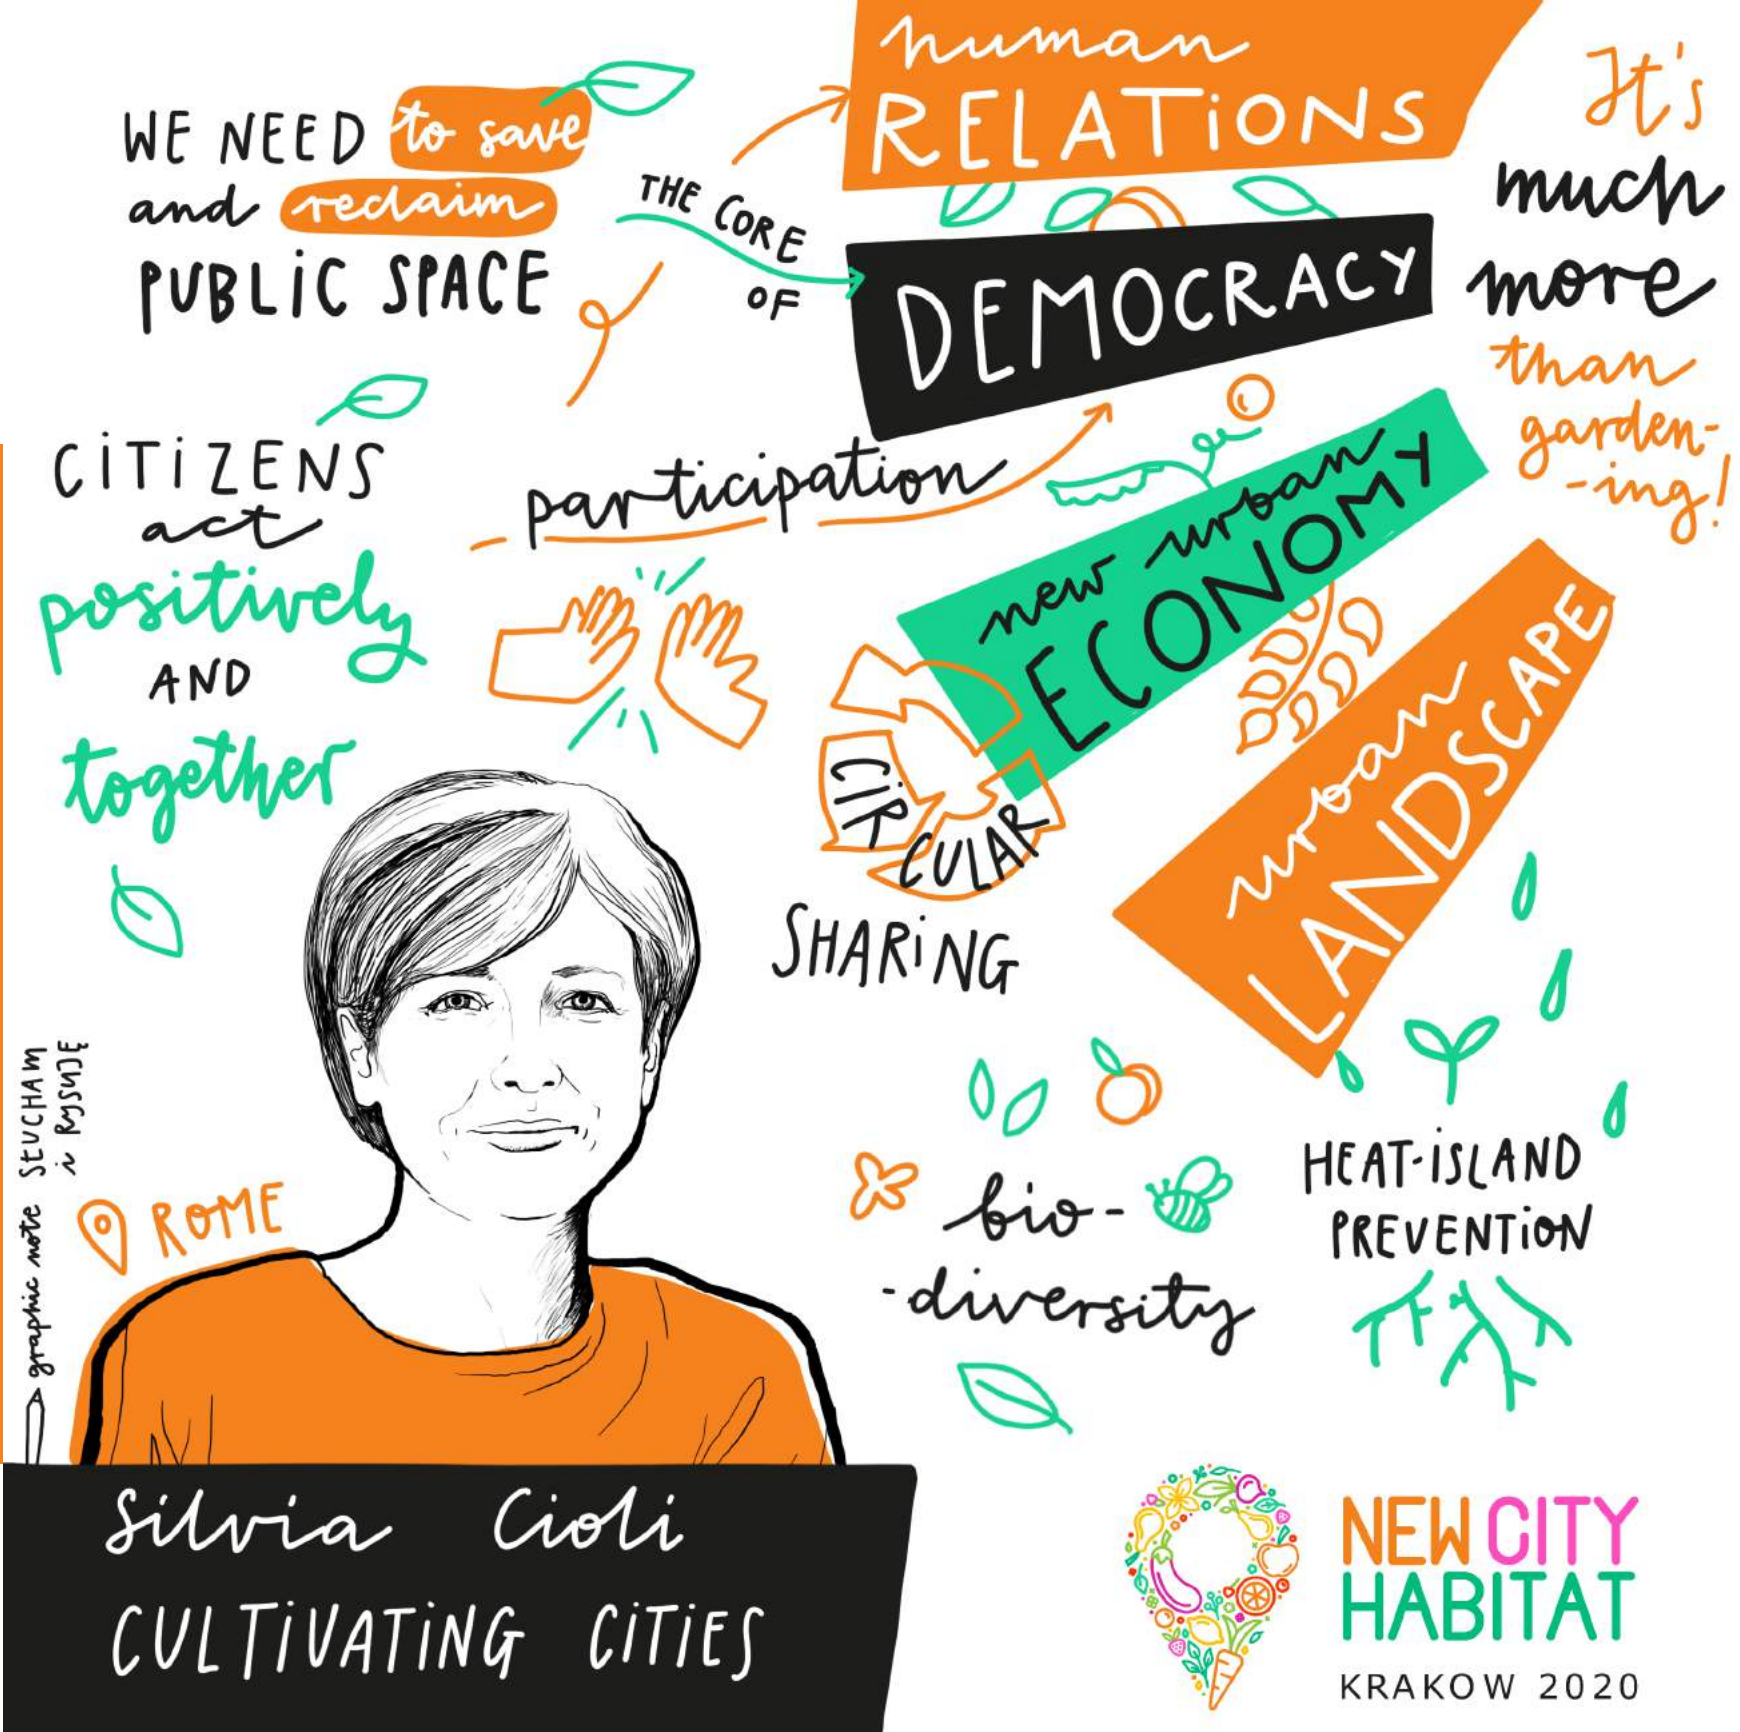 WE NEED to save
and reclaim
PUBLIC SPACE
human
RELATIONS
THE CORE
OF
DEMOCRACY
It's
much
more
than
garden-
-ing!
CITIZENS
act
positively
AND
together
participation
new urban
ECONOMY
CIR
CULAR
SHARING
urban
LANDSCAPE
bio-
-diversity
HEAT-ISLAND
PREVENTION
graphic note SŁUCHAM
i RYSUJĘ
ROME
Silvia Cioli
CULTIVATING CITIES
NEW CITY
HABITAT
KRAKOW 2020